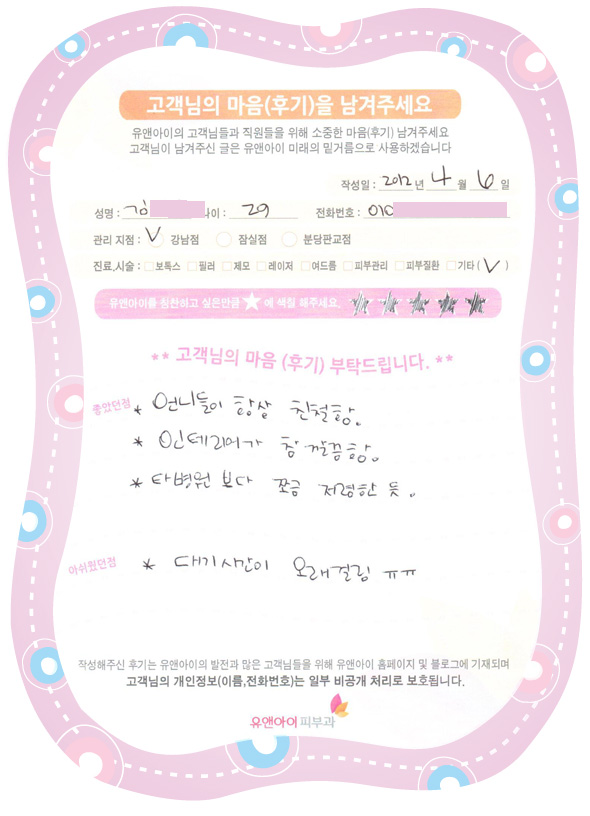 고객님의 마음(후기)을 남겨주세요
유앤아이의 고객님들과 직원들을 위해 소중한 마음(후기) 남겨주세요
고객님이 남겨주신 글은 유앤아이 미래의 밑거름으로 사용하겠습니다
작성일 : 2012 년 4 월 6 일
성명 : 김 나이 : 29 전화번호 : 010
관리 지점 : V 강남점 잠실점 분당판교점
진료,시술 : 보톡스 필러 제모 레이저 여드름 피부관리 피부질환 기타 ( V )
유앤아이를 칭찬하고 싶은만큼 ★ 에 색칠 해주세요. ★ ★ ★ ★ ★
** 고객님의 마음 (후기) 부탁드립니다. **
좋았던점 * 언니들이 항상 친절함.
* 인테리어가 참 깔끔함.
* 타병원 보다 쪼금 저렴한 듯.
아쉬웠던점 * 대기시간이 오래걸림 ㅠㅠ
작성해주신 후기는 유앤아이의 발전과 많은 고객님들을 위해 유앤아이 홈페이지 및 블로그에 기재되며
고객님의 개인정보(이름,전화번호)는 일부 비공개 처리로 보호됩니다.
유앤아이피부과